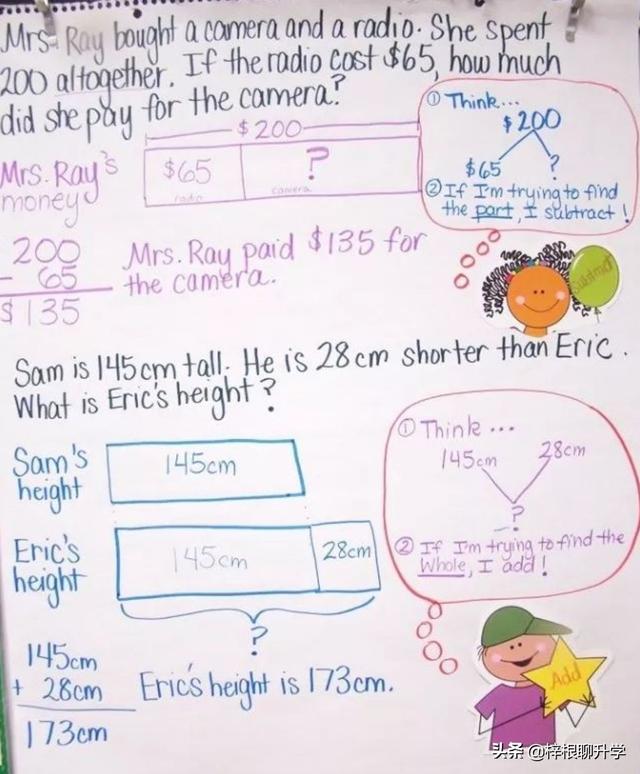 Mrs. Ray bought a camera and a radio. She spent
200 altogether. If the radio cost $65, how much
did she pay for the camera?
$200
Mrs. Ray's
money
$65
?
radio
camera
① Think...
$200
$65
?
② If I'm trying to find
the part, I subtract!
200
- 65
$135
Mrs. Ray paid $135 for
the camera.
Subtract
Sam is 145cm tall. He is 28cm shorter than Eric.
What is Eric's height?
Sam's
height
145cm
Eric's
height
145cm
28cm
?
① Think...
145cm
28cm
?
② If I'm trying to find the
Whole, I add!
145cm
+ 28cm
173cm
Eric's height is 173cm.
Add
头条 @梓根聊升学